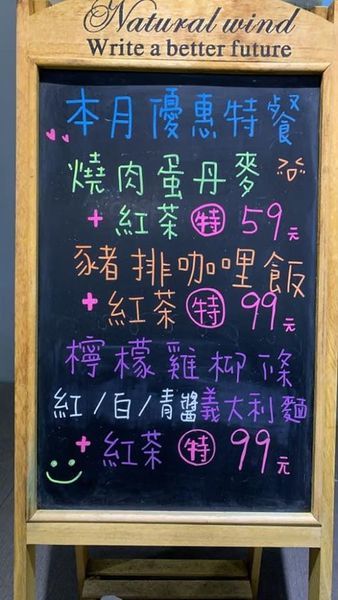 Natural wind
Write a better future
本月優惠特餐
燒肉蛋丹麥
+紅茶 特 59元
豬排咖哩飯
+紅茶 特 99元
檸檬雞柳條
紅/白/青醬義大利麵
+紅茶 特 99元